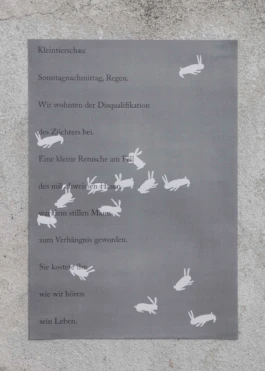 Kleintierschau
Sonntagnachmittag, Regen.
Wir wohnten der Disqualifikation
des Züchters bei.
Eine kleine Retusche am Fell
des
war dem stillen Mann
zum Verhängnis geworden.
Sie kostete ihn
wie wir hören
sein Leben.